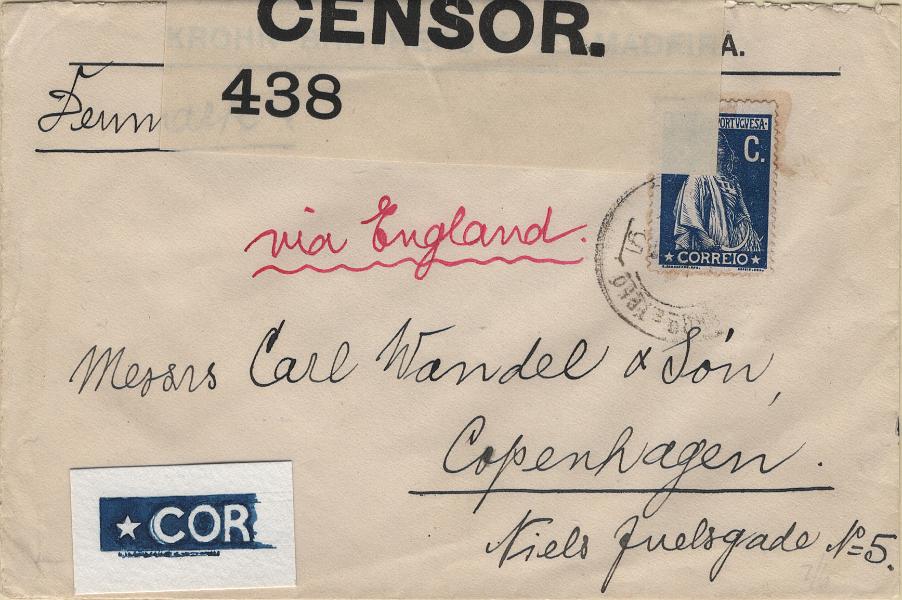 CENSOR.
KROHN BROTHERS MADEIRA.
438
via England.
PORTUGUESA
C.
CORREIO
Messrs Carl Wandel & Són,
Copenhagen.
Niels Juelsgade Nº 5.
COR